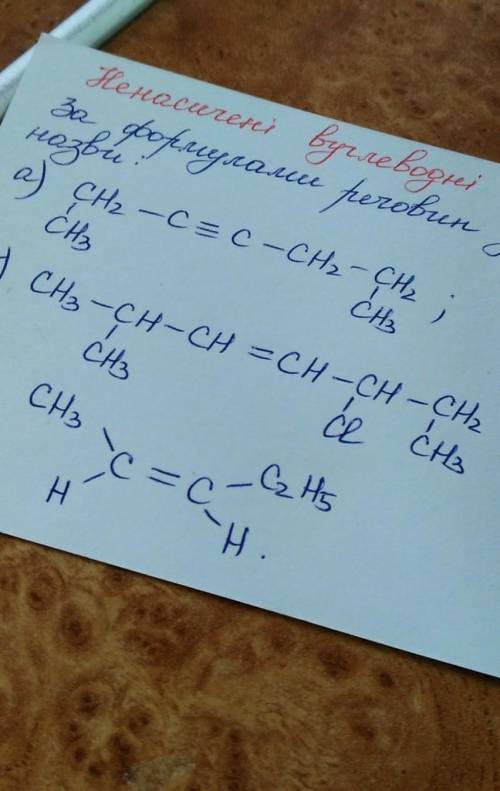 Ненасичені вуглеводні
За формулами речовин
назви:
а) CH₂ – C ≡ C – CH₂ – CH₂ ;
CH₃ CH₃
) CH₃ – CH – CH = CH – CH – CH₂
CH₃ Cl CH₃
CH₃
C = C – C₂H₅
H H .